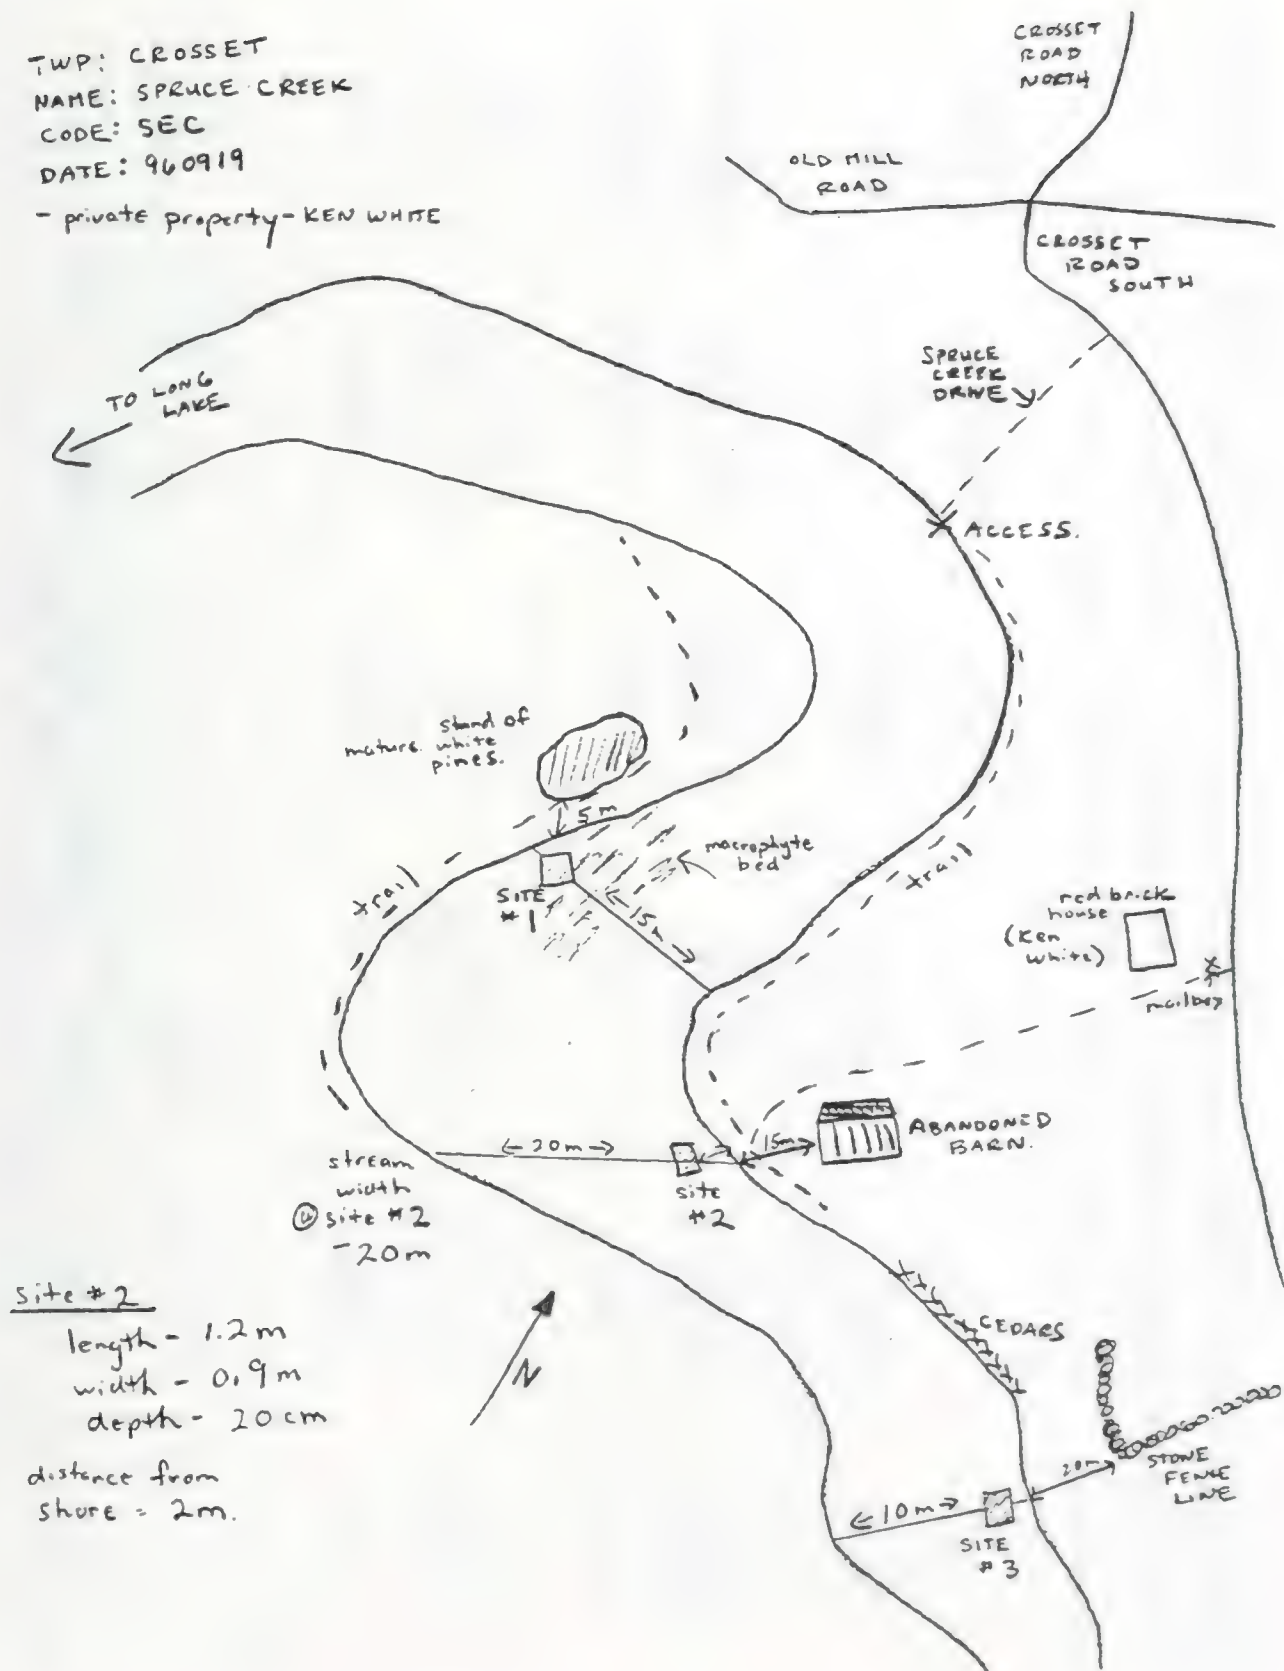 TWP: CROSSET
NAME: SPRUCE CREEK
CODE: SEC
DATE: 960919
- private property - KEN WHITE
CROSSET
ROAD
NORTH
OLD MILL
ROAD
CROSSET
ROAD
SOUTH
SPRUCE
CREEK
DRIVE
TO LONG
LAKE
ACCESS.
stand of
mature white
pines.
5m
macrophyte
bed
trail
trail
SITE
#1
15m
red brick
house
(Ken
White)
mailbox
20m
15m
ABANDONED
BARN.
stream
width
@ site #2
- 20m
site
#2
site #2
length - 1.2m
width - 0.9m
depth - 20cm
distance from
shore = 2m.
N
CEDARS
20m
STONE
FENCE
LINE
10m
SITE
#3